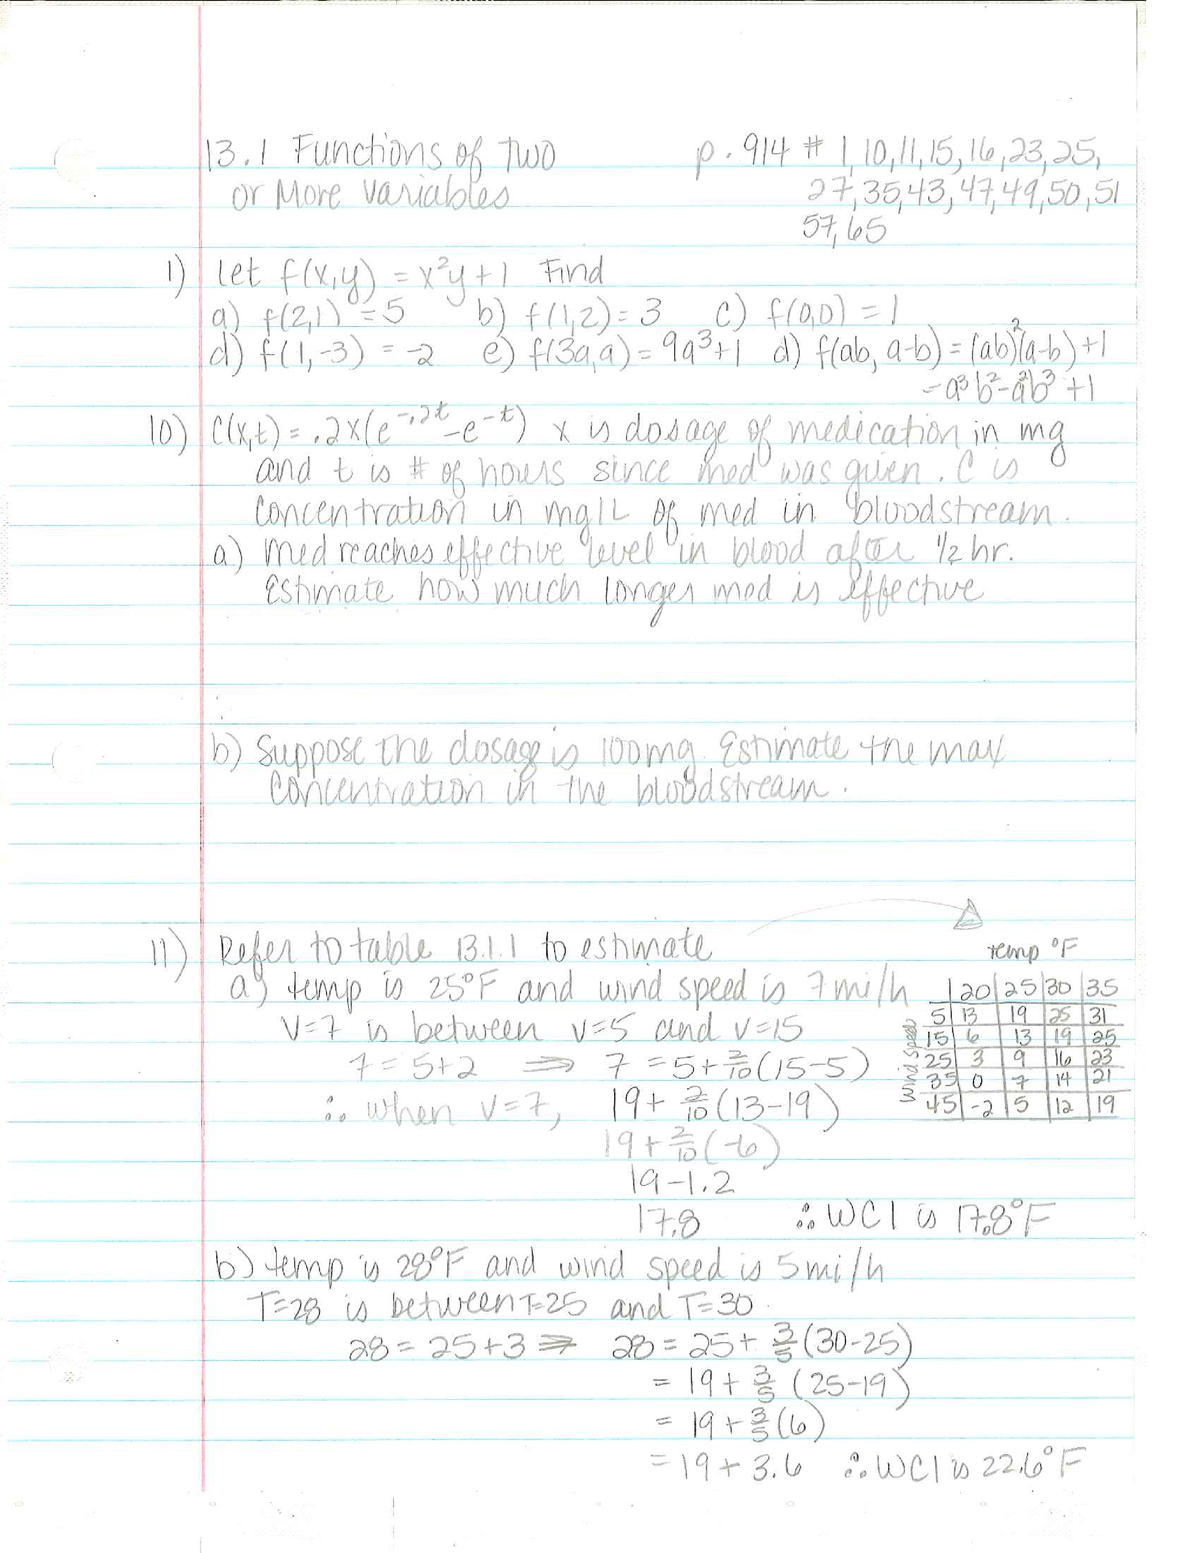 13.1 Functions of two
or More variables
p. 914 # 1, 10, 11, 15, 16, 23, 25,
27, 35, 43, 47, 49, 50, 51
57, 65
1) let f(x,y) = x²y+1 Find
a) f(2,1) = 5 b) f(1,2) = 3 c) f(0,0) = 1
d) f(1,-3) = -2 e) f(3a,a) = 9a³+1 d) f(ab, a-b) = (ab)²(a-b)+1
= a³b²-a²b³+1
10) C(x,t) = .2x(e^-.2t - e^-t) x is dosage of medication in mg
and t is # of hours since med was given. C is
Concentration in mg/L of med in bloodstream.
a) med reaches effective level in blood after 1/2 hr.
Estimate how much longer med is effective
b) Suppose the dosage is 100mg. Estimate the max
Concentration in the bloodstream.
11) Refer to table 13.1.1 to estimate
a) temp is 25°F and wind speed is 7mi/h
V=7 is between v=5 and v=15
7 = 5+2 ⇒ 7 = 5+2/10(15-5)
∴ when v=7, 19+2/10(13-19)
19+2/10(-6)
19-1.2
17.8 ∴ WCI is 17.8°F
temp °F
20 25 30 35
5 13 19 25 31
15 6 13 19 25
25 3 9 16 23
35 0 7 14 21
45 -2 5 12 19
wind speed
b) temp is 28°F and wind speed is 5mi/h
T=28 is between T=25 and T=30.
28 = 25+3 ⇒ 28 = 25+3/5(30-25)
= 19+3/5(25-19)
= 19+3/5(6)
= 19+3.6 ∴ WCI is 22.6°F